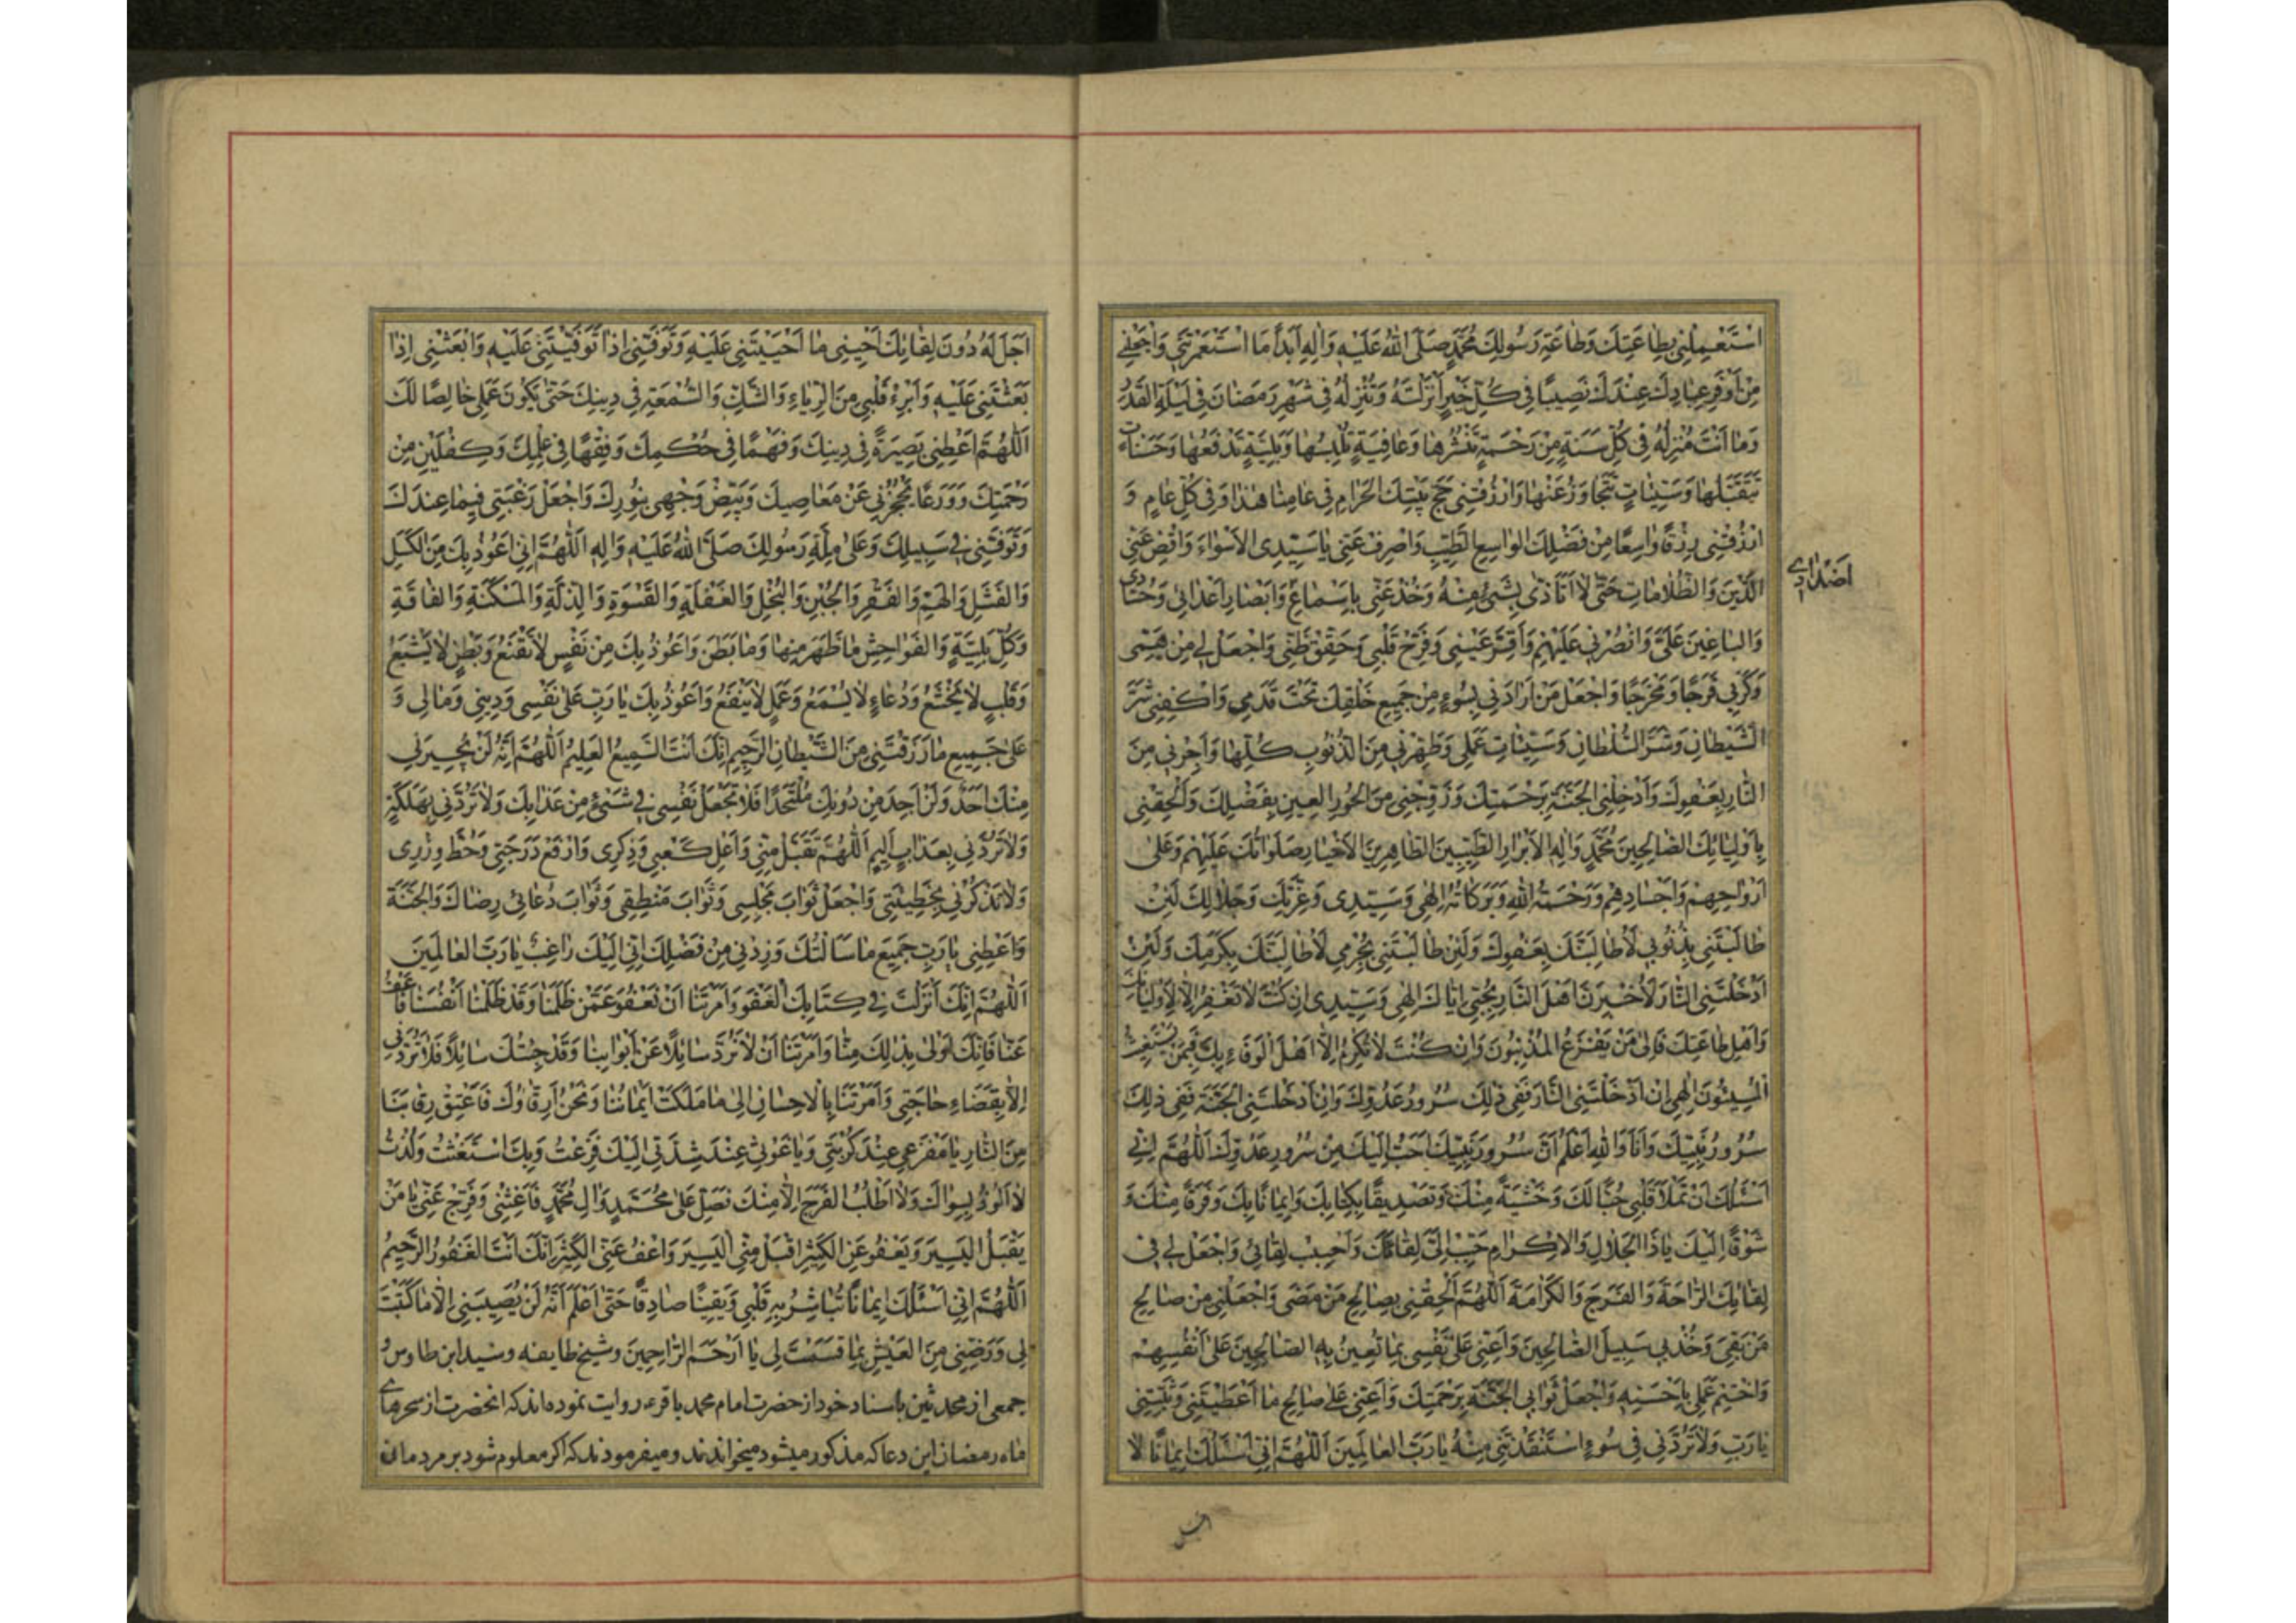 اسْتَعْمِلْنِی بِطٰاعَتِكَ وَطٰاعَةِ رَسُولِكَ مُحَمَّدٍ صَلَّی اللهُ عَلَیْهِ وَاٰلِهِ اَبَداً مَا اسْتَعْمَرْتَنِی وَاجْعَلْنِی
مِنْ اَوْفَرِ عِبٰادِكَ عِنْدَكَ نَصِیبًا فِی كُلِّ خَیْرٍ اَنْزَلْتَهُ وَتُنْزِلُهُ فِی شَهْرِ رَمَضٰانَ فِی لَیْلَةِ القَدْرِ
وَمٰا اَنْتَ مُنْزِلُهُ فِی كُلِّ سَنَةٍ مِنْ رَحْمَةٍ تَنْشُرُهٰا وَعٰافِیَةٍ تُلْبِسُهٰا وَبَلِیَّةٍ تَدْفَعُهٰا وَحَسَنٰاتٍ
تَتَقَبَّلُهٰا وَسَیِّئٰاتٍ تَتَجٰاوَزُ عَنْهٰا وَارْزُقْنِی حَجَّ بَیْتِكَ الحَرٰامِ فِی عٰامِنٰا هٰذٰا وَفِی كُلِّ عٰامٍ وَ
ارْزُقْنِی رِزْقًا وٰاسِعًا مِنْ فَضْلِكَ الوٰاسِعِ الطَّیِّبِ وَاصْرِفْ عَنِّی یٰا سَیِّدِی الاَسْوٰاءَ وَاقْضِ عَنِّی
الدَّیْنَ وَالظُّلاٰمٰاتِ حَتّٰی لاٰ اَتَاَذّٰی بِشَیْءٍ مِنْهُ وَخُذْ عَنِّی بِاَسْمٰاعِ وَاَبْصٰارِ اَعْدٰائِی وَحُسّٰادِی
وَالبٰاغِینَ عَلَیَّ وَانْصُرْنِی عَلَیْهِمْ وَاَقِرَّ عَیْنِی وَفَرِّحْ قَلْبِی وَحَقِّقْ ظَنِّی وَاجْعَلْ لِی مِنْ هَمِّی
وَكَرْبِی فَرَجًا وَمَخْرَجًا وَاجْعَلْ مَنْ اَرٰادَنِی بِسُوءٍ مِنْ جَمِیعِ خَلْقِكَ تَحْتَ قَدَمِی وَاكْفِنِی شَرَّ
الشَّیْطٰانِ وَشَرَّ السُّلْطٰانِ وَسَیِّئٰاتِ عَمَلِی وَطَهِّرْنِی مِنَ الذُّنُوبِ كُلِّهٰا وَاَجِرْنِی مِنَ
النّٰارِ بِعَفْوِكَ وَاَدْخِلْنِی الجَنَّةَ بِرَحْمَتِكَ وَزَوِّجْنِی مِنَ الحُورِ العِینِ بِفَضْلِكَ وَاَلْحِقْنِی
بِاَوْلِیٰائِكَ الصّٰالِحِینَ مُحَمَّدٍ وَاٰلِهِ الاَبْرٰارِ الطَّیِّبِینَ الطّٰاهِرِینَ الاَخْیٰارِ صَلَوٰاتُكَ عَلَیْهِمْ وَعَلٰی
اَرْوٰاحِهِمْ وَاَجْسٰادِهِمْ وَرَحْمَةُ اللهِ وَبَرَكٰاتُهُ اِلٰهِی وَسَیِّدِی وَعِزَّتِكَ وَجَلاٰلِكَ لَئِنْ
طٰالَبْتَنِی بِذُنُوبِی لَاُطٰالِبَنَّكَ بِعَفْوِكَ وَلَئِنْ طٰالَبْتَنِی بِجُرْمِی لَاُطٰالِبَنَّكَ بِكَرَمِكَ وَلَئِنْ
اَدْخَلْتَنِی النّٰارَ لَاُخْبِرَنَّ اَهْلَ النّٰارِ بِحُبِّی اِیّٰاكَ اِلٰهِی وَسَیِّدِی اِنْ كُنْتَ لاٰ تَغْفِرُ اِلاّٰ لِاَوْلِیٰائِكَ
وَاَهْلِ طٰاعَتِكَ فَاِلٰی مَنْ یَفْزَعُ المُذْنِبُونَ وَاِنْ كُنْتَ لاٰ تُكْرِمُ اِلاّٰ اَهْلَ الوَفٰاءِ بِكَ فَبِمَنْ یَسْتَغِیثُ
المُسِیئُونَ اِلٰهِی اِنْ اَدْخَلْتَنِی النّٰارَ فَفِی ذٰلِكَ سُرُورُ عَدُوِّكَ وَاِنْ اَدْخَلْتَنِی الجَنَّةَ فَفِی ذٰلِكَ
سُرُورُ نَبِیِّكَ وَاَنَا وَاللهِ اَعْلَمُ اَنَّ سُرُورَ نَبِیِّكَ اَحَبُّ اِلَیْكَ مِنْ سُرُورِ عَدُوِّكَ اَللّٰهُمَّ اِنِّی
اَسْئَلُكَ اَنْ تَمْلَأَ قَلْبِی حُبًّا لَكَ وَخَشْیَةً مِنْكَ وَتَصْدِیقًا بِكِتٰابِكَ وَاِیمٰانًا بِكَ وَفَرَقًا مِنْكَ وَ
شَوْقًا اِلَیْكَ یٰا ذَا الجَلاٰلِ وَالاِكْرٰامِ حَبِّبْ اِلَیَّ لِقٰائَكَ وَاَحْبِبْ لِقٰائِی وَاجْعَلْ لِی فِی
لِقٰائِكَ الرّٰاحَةَ وَالفَرَجَ وَالكَرٰامَةَ اَللّٰهُمَّ اَلْحِقْنِی بِصٰالِحِ مَنْ مَضٰی وَاجْعَلْنِی مِنْ صٰالِحِ
مَنْ بَقِیَ وَخُذْ بِی سَبِیلَ الصّٰالِحِینَ وَاَعِنِّی عَلٰی نَفْسِی بِمٰا تُعِینُ بِهِ الصّٰالِحِینَ عَلٰی اَنْفُسِهِمْ
وَاخْتِمْ عَمَلِی بِاَحْسَنِهِ وَاجْعَلْ ثَوٰابِی الجَنَّةَ بِرَحْمَتِكَ وَاَعِنِّی عَلٰی صٰالِحِ مٰا اَعْطَیْتَنِی وَثَبِّتْنِی
یٰا رَبِّ وَلاٰ تَرُدَّنِی فِی سُوءٍ اسْتَنْقَذْتَنِی مِنْهُ یٰا رَبَّ العٰالَمِینَ اَللّٰهُمَّ اِنِّی اَسْئَلُكَ اِیمٰانًا لاٰ
اَجَلَ لَهُ دُونَ لِقٰائِكَ اَحْیِنِی مٰا اَحْیَیْتَنِی عَلَیْهِ وَتَوَفَّنِی اِذٰا تَوَفَّیْتَنِی عَلَیْهِ وَابْعَثْنِی اِذٰا
بَعَثْتَنِی عَلَیْهِ وَاَبْرِءْ قَلْبِی مِنَ الرِّیٰاءِ وَالشَّكِّ وَالسُّمْعَةِ فِی دِینِكَ حَتّٰی یَكُونَ عَمَلِی خٰالِصًا لَكَ
اَللّٰهُمَّ اَعْطِنِی بَصِیرَةً فِی دِینِكَ وَفَهْمًا فِی حُكْمِكَ وَفِقْهًا فِی عِلْمِكَ وَكِفْلَیْنِ مِنْ
رَحْمَتِكَ وَوَرَعًا یَحْجُزُنِی عَنْ مَعٰاصِیكَ وَبَیِّضْ وَجْهِی بِنُورِكَ وَاجْعَلْ رَغْبَتِی فِیمٰا عِنْدَكَ
وَتَوَفَّنِی فِی سَبِیلِكَ وَعَلٰی مِلَّةِ رَسُولِكَ صَلَّی اللهُ عَلَیْهِ وَاٰلِهِ اَللّٰهُمَّ اِنِّی اَعُوذُ بِكَ مِنَ الكَسَلِ
وَالفَشَلِ وَالهَمِّ وَالفَقْرِ وَالجُبْنِ وَالبُخْلِ وَالغَفْلَةِ وَالقَسْوَةِ وَالذِّلَّةِ وَالمَسْكَنَةِ وَالفٰاقَةِ
وَكُلِّ بَلِیَّةٍ وَالفَوٰاحِشِ مٰا ظَهَرَ مِنْهٰا وَمٰا بَطَنَ وَاَعُوذُ بِكَ مِنْ نَفْسٍ لاٰ تَقْنَعُ وَبَطْنٍ لاٰ یَشْبَعُ
وَقَلْبٍ لاٰ یَخْشَعُ وَدُعٰاءٍ لاٰ یُسْمَعُ وَعَمَلٍ لاٰ یَنْفَعُ وَاَعُوذُ بِكَ یٰا رَبِّ عَلٰی نَفْسِی وَدِینِی وَمٰالِی وَ
عَلٰی جَمِیعِ مٰا رَزَقْتَنِی مِنَ الشَّیْطٰانِ الرَّجِیمِ اِنَّكَ اَنْتَ السَّمِیعُ العَلِیمُ اَللّٰهُمَّ اِنَّهُ لَنْ یُجِیرَنِی
مِنْكَ اَحَدٌ وَلَنْ اَجِدَ مِنْ دُونِكَ مُلْتَحَدًا فَلاٰ تَجْعَلْ نَفْسِی فِی شَیْءٍ مِنْ عَذٰابِكَ وَلاٰ تَرُدَّنِی بِهَلَكَةٍ
وَلاٰ تَرُدَّنِی بِعَذٰابٍ اَلِیمٍ اَللّٰهُمَّ تَقَبَّلْ مِنِّی وَاَعْلِ كَعْبِی وَذِكْرِی وَارْفَعْ دَرَجَتِی وَحُطَّ وِزْرِی
وَلاٰ تَذْكُرْنِی بِخَطِیئَتِی وَاجْعَلْ ثَوٰابَ مَجْلِسِی وَثَوٰابَ مَنْطِقِی وَثَوٰابَ دُعٰائِی رِضٰاكَ وَالجَنَّةَ
وَاَعْطِنِی یٰا رَبِّ جَمِیعَ مٰا سَاَلْتُكَ وَزِدْنِی مِنْ فَضْلِكَ اِنِّی اِلَیْكَ رٰاغِبٌ یٰا رَبَّ العٰالَمِینَ
اَللّٰهُمَّ اِنَّكَ اَنْزَلْتَ فِی كِتٰابِكَ الْعَفْوَ وَاَمَرْتَنٰا اَنْ نَعْفُوَ عَمَّنْ ظَلَمَنٰا وَقَدْ ظَلَمْنٰا اَنْفُسَنٰا فَاعْفُ
عَنّٰا فَاِنَّكَ اَوْلٰی بِذٰلِكَ مِنّٰا وَاَمَرْتَنٰا اَنْ لاٰ نَرُدَّ سٰائِلاً عَنْ اَبْوٰابِنٰا وَقَدْ جِئْتُكَ سٰائِلاً فَلاٰ تَرُدَّنِی
اِلاّٰ بِقَضٰاءِ حٰاجَتِی وَاَمَرْتَنٰا بِالاِحْسٰانِ اِلٰی مٰا مَلَكَتْ اَیْمٰانُنٰا وَنَحْنُ اَرِقّٰاؤُكَ فَاَعْتِقْ رِقٰابَنٰا
مِنَ النّٰارِ یٰا مَفْزَعِی عِنْدَ كُرْبَتِی وَیٰا غَوْثِی عِنْدَ شِدَّتِی اِلَیْكَ فَزِعْتُ وَبِكَ اسْتَغَثْتُ وَلُذْتُ
لاٰ اَلُوذُ بِسِوٰاكَ وَلاٰ اَطْلُبُ الفَرَجَ اِلاّٰ مِنْكَ فَصَلِّ عَلٰی مُحَمَّدٍ وَاٰلِ مُحَمَّدٍ فَاَغِثْنِی وَفَرِّجْ عَنِّی یٰا مَنْ
یَقْبَلُ الیَسِیرَ وَیَعْفُو عَنِ الكَثِیرِ اقْبَلْ مِنِّی الْیَسِیرَ وَاعْفُ عَنِّی الكَثِیرَ اِنَّكَ اَنْتَ الغَفُورُ الرَّحِیمُ
اَللّٰهُمَّ اِنِّی اَسْئَلُكَ اِیمٰانًا تُبٰاشِرُ بِهِ قَلْبِی وَیَقِینًا صٰادِقًا حَتّٰی اَعْلَمَ اَنَّهُ لَنْ یُصِیبَنِی اِلاّٰ مٰا كَتَبْتَ
لِی وَرَضِّنِی مِنَ العَیْشِ بِمٰا قَسَمْتَ لِی یٰا اَرْحَمَ الرّٰاحِمِینَ وشیخ طایفه وسید ابن طاوس
جمعی از محدثین باسناد خود از حضرت امام محمد باقر ع روایت نموده‌اند كه انحضرت از سحرهای
ماه رمضان این دعا كه مذكور میشود میخواندند و میفرمودند كه اكر معلوم شود بر مردمان